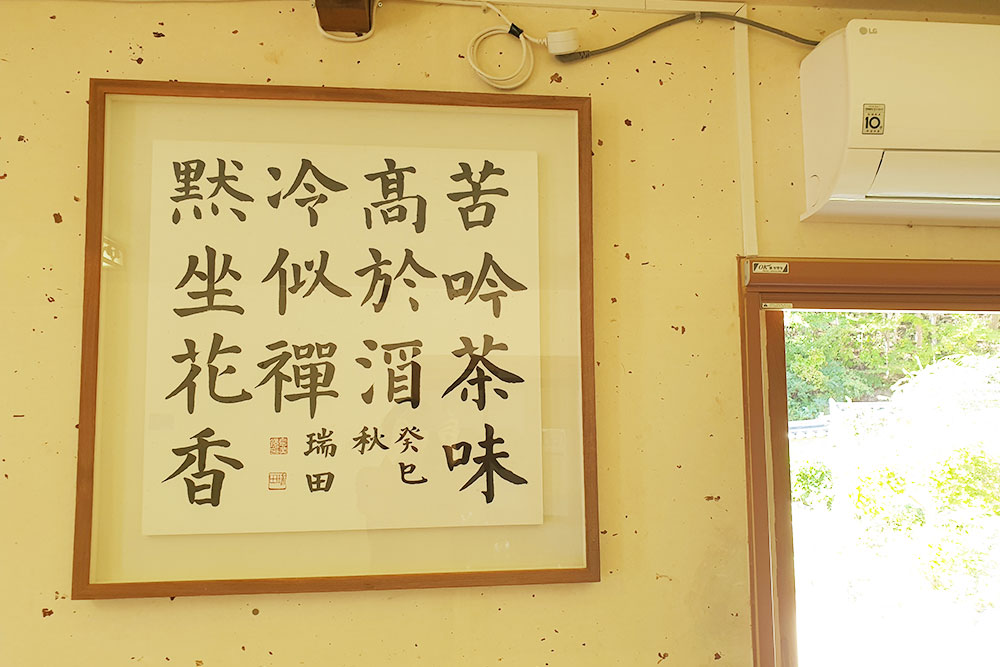 苦吟茶味
髙於酒
冷似禪
默坐花香
癸巳
秋
瑞田
LG
10
OK